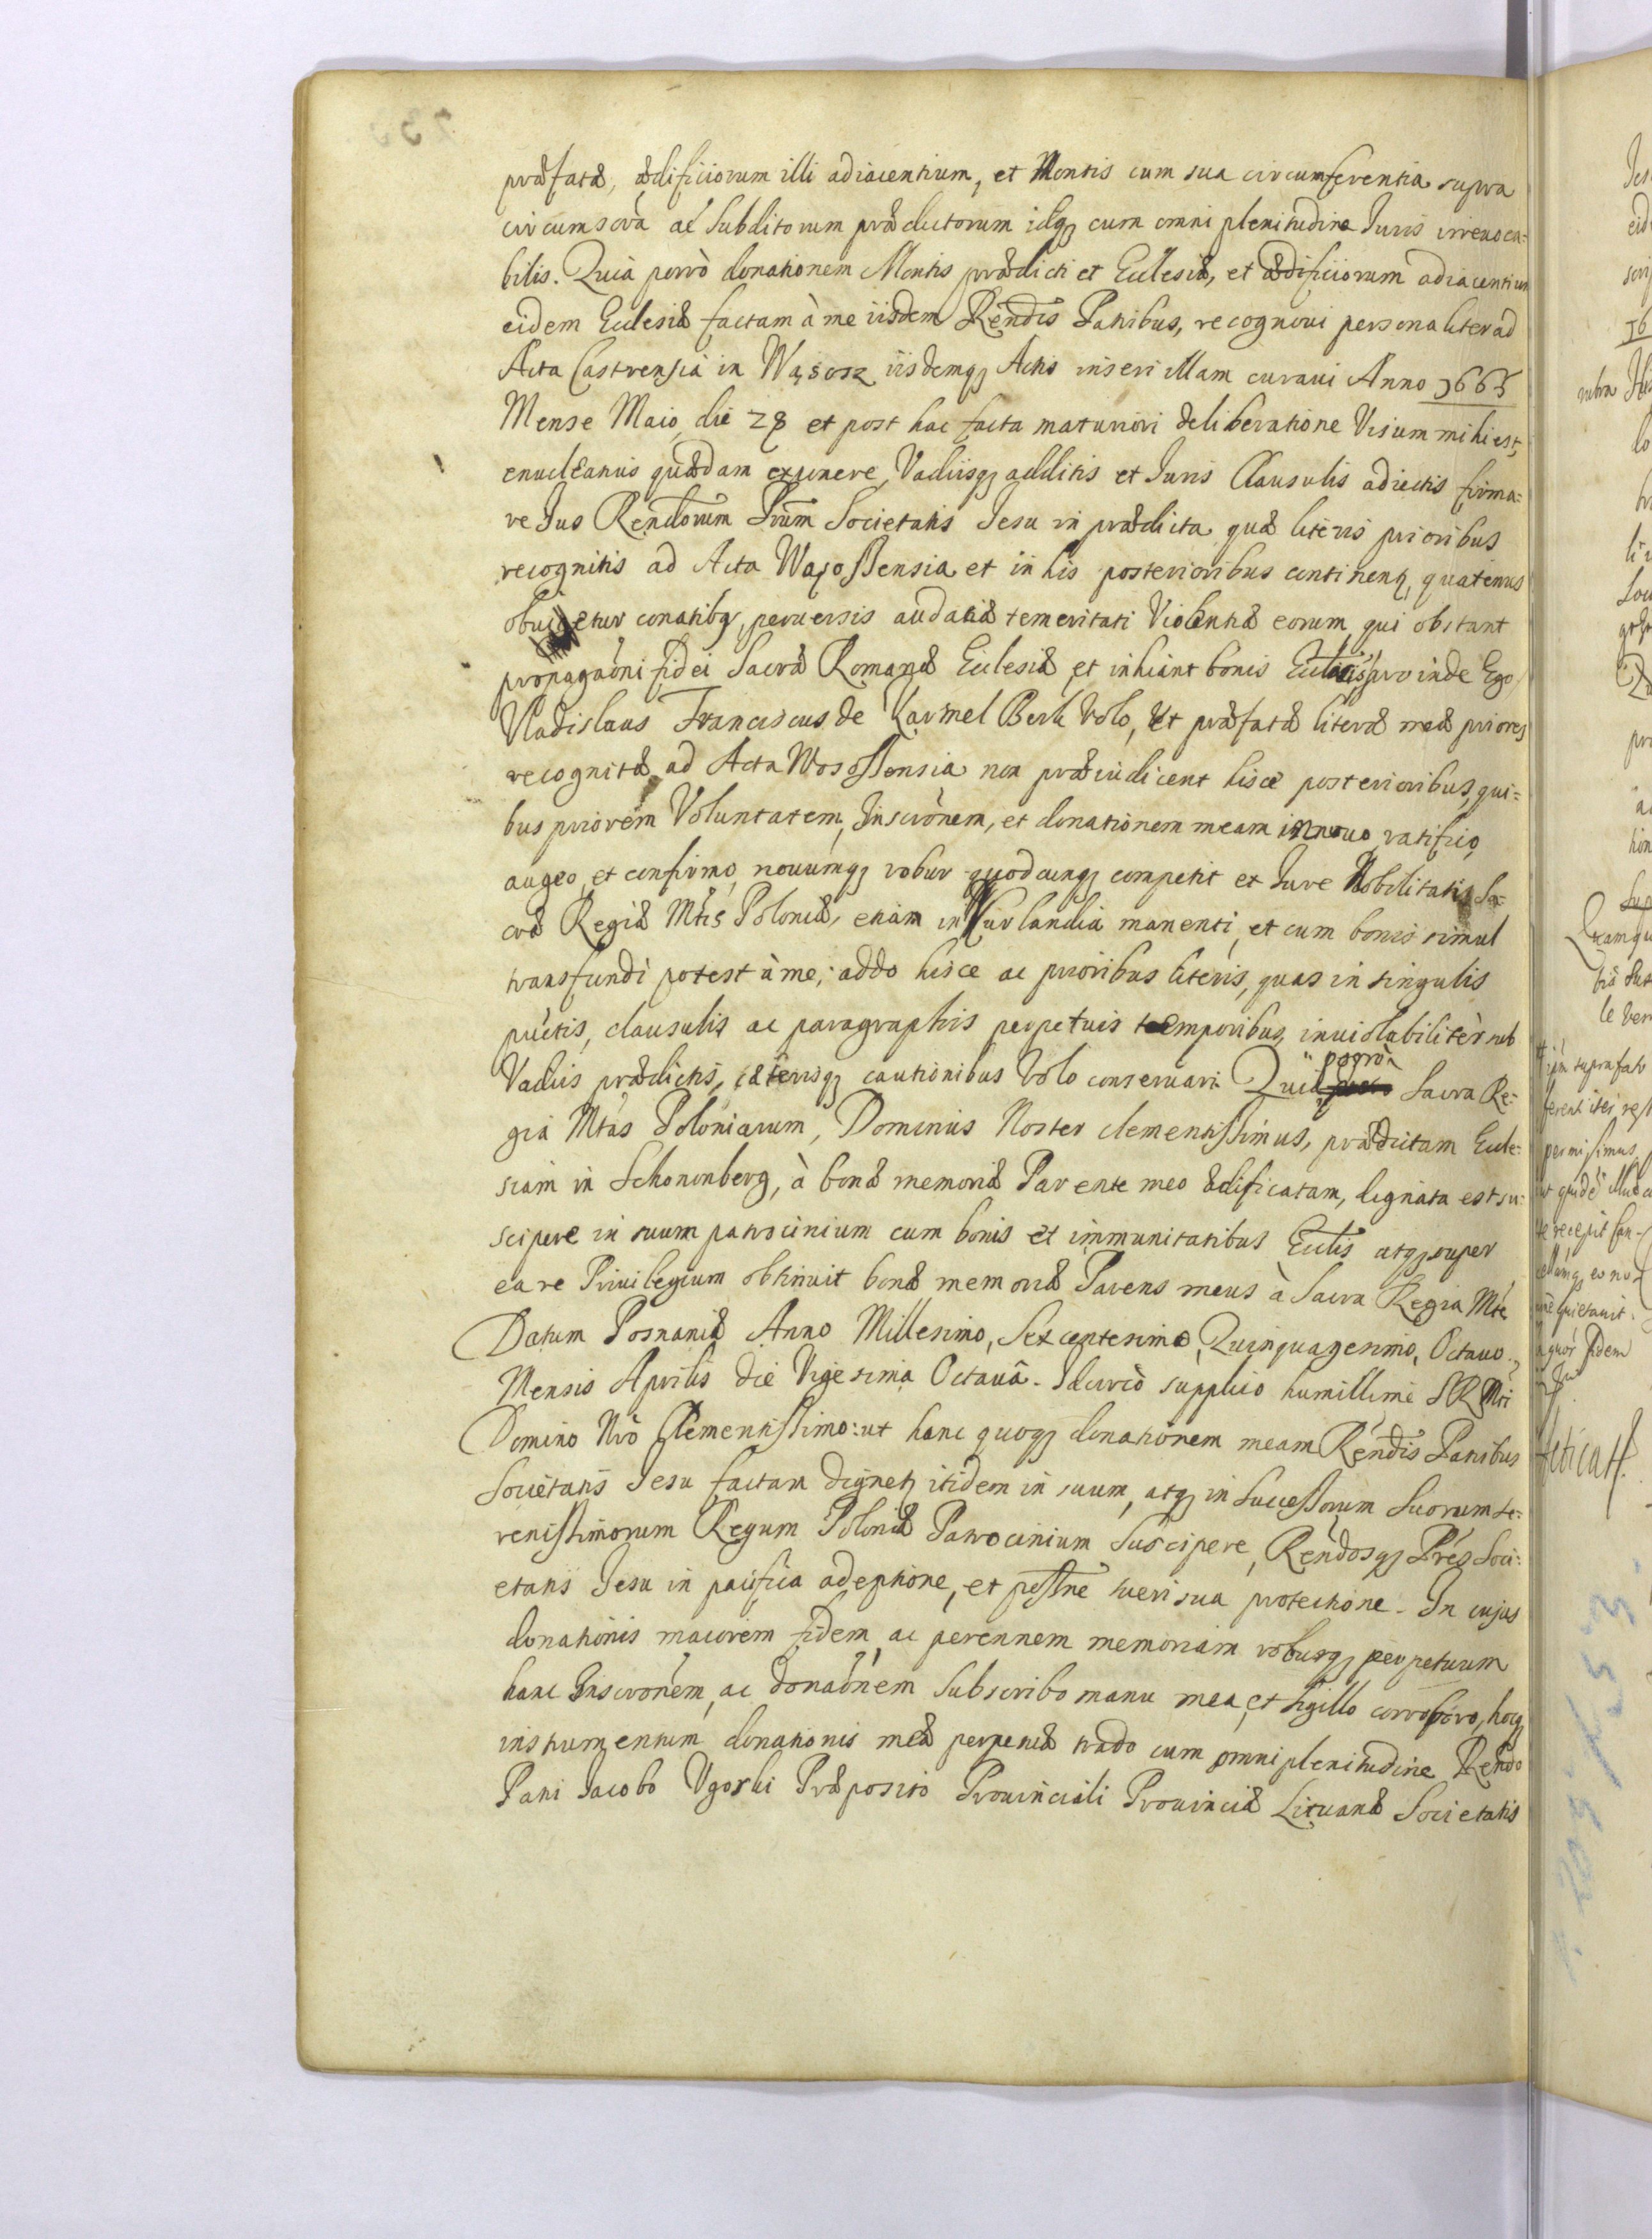 præfatæ, ædificiorum illi adiacentium, et Montis cum sua circumferentia supra
circumscrã ac Subditorum prædictorum idq; cum omni plenitudine Iuris irreuoca=
bilis. Quia porrò donationem Montis prædicti et Ecclesiæ, et ædificiorum adiacentium
eidem Ecclesiæ factam à me iisdem Rendis Patribus, recognoui personaliter ad
Acta Castrensia in Wąsosz iisdemq; Actis inseri illam curaui Anno 1665
Mense Maio, die 28 et post hac facta maturiori deliberatione Visum mihi est,
enucleatius quædam exponere, Vadiisq; additis et Iuris Clausulis adiectis firma=
re Ius Rendorum Prum Societatis Iesu in prædicta quæ literis prioribus
recognitis ad Acta Wąsossensia et in his posterioribus continent, quatenus
obuietur conatibq, peruersis audatiæ temeritati Violentiæ eorum, qui obstant
propagaõni fidei Sacræ Romanæ Ecclesiæ et inhiant bonis proinde Ego
Vladislaus Franciscus de Karmel Berk Volo, Ut præfatæ literæ meæ priores
recognitæ ad Acta Wosossensia non præiudicent hisce posterioribus, qui=
bus priorem Voluntatem, Inscrõnem, et donationem meam innouo, ratifico,
augeo, et confirmo, nouumq; robur quodcunq; competit et Iure Nobilitatis Sa=
cræ Regiæ Mtis Poloniæ, etiam in Kurlandia manenti, et cum bonis simul
transfundi potest à me, addo hisce ac prioribus literis, quas in singulis
puctis, clausulis ac paragraphis perpetuis temporibus, inuiolabiliter sub
Vadiis prædictis, cæterisq; cautionibus Volo conseruari. Quia porrò Sacra Re=
gia Mtas Poloniarum, Dominus Noster clementissimus, prædictam Eccle=
siam in Schononberg, à bonæ memoriæ Parente meo ædificatam, dignata est su=
scipere in suum patrocinium cum bonis et immunitatibus Ecclis atq; super
ea re Priuilegium obtinuit bonæ memoriæ Parens meus à Sacra Regia Mte
Datum Posnaniæ Anno Millesimo, Sexcentesimo, Quinquagesimo, Octauo.
Mensis Aprilis die Vigesima Octauâ. Idcircò supplico humillimè SRMti
Domino Nrõ Clementissimo: ut hanc quoq; donationem meam Rendis Patribus
Societatis Iesu factam dignet itidem in suum, atq; in Successorum Suorum Se=
renissimorum Regum Poloniæ Patrocinium Suscipere, Rendosq; Pres Soci=
etatis Iesu in pacifica adeptione, et possne tueri sua protectione. In cujus
donationis maiorem fidem, ac perennem memoriam roburq; perpetuum
hanc Inscronem, ac donaõnem Subscribo manu mea, et Sigillo corroboro, hocq;
instrumentum donationis meæ perpetuæ trado cum omni plenitudine Rendo
Patri Iacobo Ugoski Præposito Prouinciali Prouinciæ Lituanæ Societatis